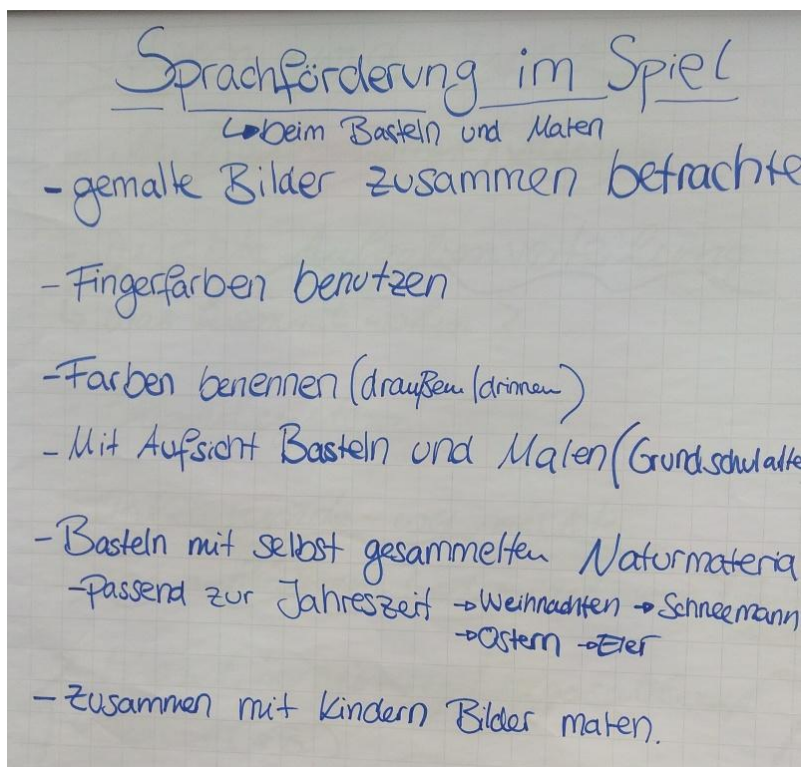 Sprachförderung im Spiel
↳ beim Basteln und Malen
- gemalte Bilder zusammen betrachte
- Fingerfarben benutzen
- Farben benennen (draußen/drinnen)
- Mit Aufsicht Basteln und Malen (Grundschulalte
- Basteln mit selbst gesammelten Naturmateria
- Passend zur Jahreszeit → Weihnachten → Schneemann
→ Ostern → Eier
- Zusammen mit Kindern Bilder malen.